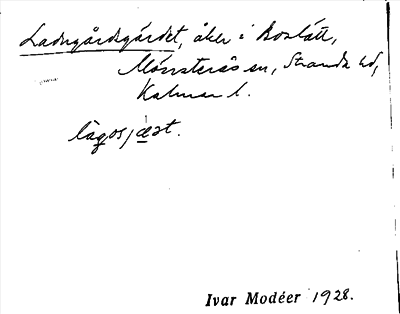 Ladugårdsgärdet, åker i Boslätt,
Mönsterås sn, Stranda hd,
Kalmar l.
lågosjæ̱t.
Ivar Modéer 1928.